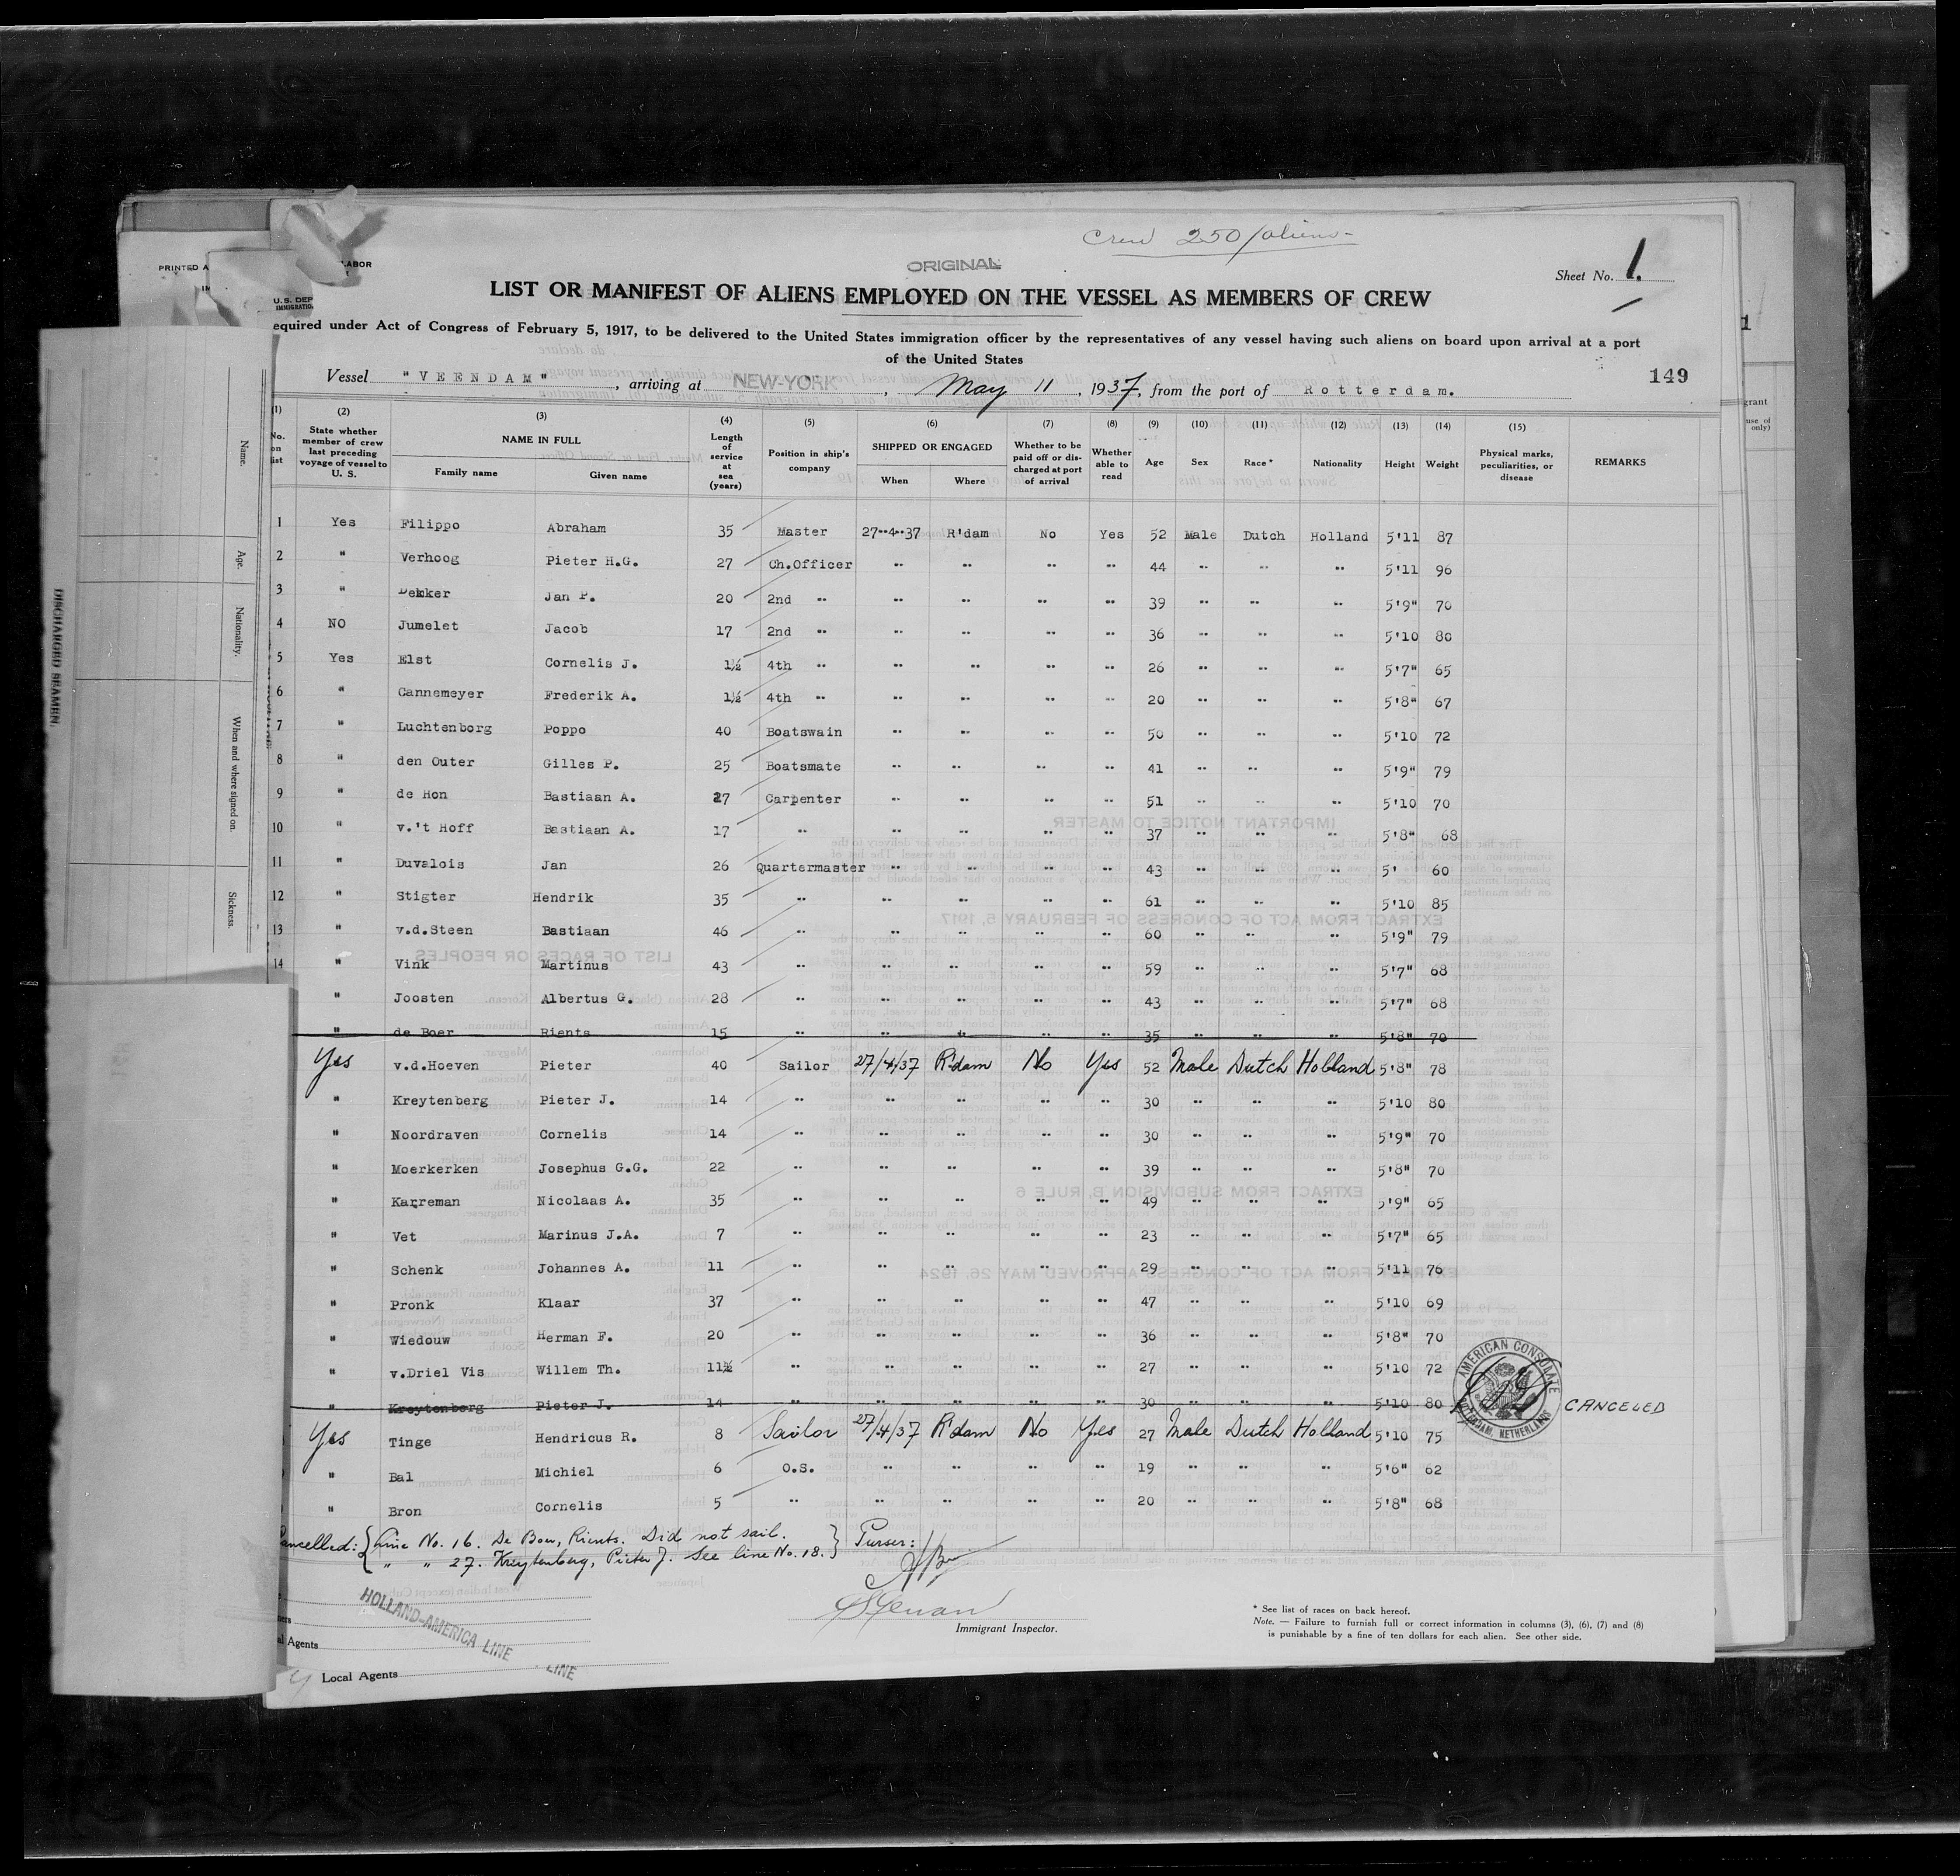 Crew 250/aliens-
ORIGINAL
Sheet No. 1.
PRINTED A
LABOR
U.S. DEP
IMMIGRATIO
LIST OR MANIFEST OF ALIENS EMPLOYED ON THE VESSEL AS MEMBERS OF CREW
equired under Act of Congress of February 5, 1917, to be delivered to the United States immigration officer by the representatives of any vessel having such aliens on board upon arrival at a port
of the United States
149
Vessel "VEENDAM", arriving at NEW-YORK, May 11, 1937, from the port of Rotterdam.
(1) (2) (3) (4) (5) (6) (7) (8) (9) (10) (11) (12) (13) (14) (15)
No. on list State whether member of crew last preceding voyage of vessel to U. S. NAME IN FULL Family name Given name Length of service at sea (years) Position in ship's company SHIPPED OR ENGAGED When Where Whether to be paid off or discharged at port of arrival Whether able to read Age Sex Race* Nationality Height Weight Physical marks, peculiarities, or disease REMARKS
1 Yes Filippo Abraham 35 Master 27-4-37 R'dam No Yes 52 Male Dutch Holland 5'11 87
2 " Verhoog Pieter H.G. 27 Ch.Officer " " " " 44 " " " 5'11 96
3 " Dekker Jan P. 20 2nd " " " " " 39 " " " 5'9" 70
4 NO Jumelet Jacob 17 2nd " " " " " 36 " " " 5'10 80
5 Yes Elst Cornelis J. 1½ 4th " " " " " 26 " " " 5'7" 65
6 " Cannemeyer Frederik A. 1½ 4th " " " " " 20 " " " 5'8" 67
7 " Luchtenborg Poppo 40 Boatswain " " " " 50 " " " 5'10 72
8 " den Outer Gilles P. 25 Boatsmate " " " " 41 " " " 5'9" 79
9 " de Hon Bastiaan A. 27 Carpenter " " " " 51 " " " 5'10 70
10 " v.'t Hoff Bastiaan A. 17 " " " " " 37 " " " 5'8" 68
11 " Duvalois Jan 26 Quartermaster " " " " 43 " " " 5' 60
12 " Stigter Hendrik 35 " " " " " 61 " " " 5'10 85
13 " v.d.Steen Bastiaan 46 " " " " " 60 " " " 5'9" 79
14 " Vink Martinus 43 " " " " " 59 " " " 5'7" 68
" Joosten Albertus G. 28 " " " " " 43 " " " 5'7" 68
" de Boer Rients 15 " " " " " 35 " " " 5'8" 70
Yes v.d.Hoeven Pieter 40 Sailor 27/4/37 R'dam No Yes 52 Male Dutch Holland 5'8" 78
" Kreytenberg Pieter J. 14 " " " " " 30 " " " 5'10 80
" Noordraven Cornelis 14 " " " " " 30 " " " 5'9" 70
" Moerkerken Josephus G.G. 22 " " " " " 39 " " " 5'8" 70
" Karreman Nicolaas A. 35 " " " " " 49 " " " 5'9" 65
" Vet Marinus J.A. 7 " " " " " 23 " " " 5'7" 65
" Schenk Johannes A. 11 " " " " " 29 " " " 5'11 76
" Pronk Klaar 37 " " " " " 47 " " " 5'10 69
" Wiedouw Herman F. 20 " " " " " 36 " " " 5'8" 70
" v.Driel Vis Willem Th. 11½ " " " " " 27 " " " 5'10 72
" Kreytenberg Pieter J. 14 " " " " " 30 " " " 5'10 80 CANCELED
AMERICAN CONSULATE ROTTERDAM, NETHERLANDS
Yes Tinge Hendricus R. 8 Sailor 27/4/37 R'dam No Yes 27 Male Dutch Holland 5'10 75
" Bal Michiel 6 O.S. " " " " 19 " " " 5'6" 62
" Bron Cornelis 5 " " " " " 20 " " " 5'8" 68
ancelled: { Line No. 16. De Boer, Rients. Did not sail. } Purser:
" " 27. Kreytenberg, Pieter J. See line No. 18.
HOLLAND-AMERICA LINE
LINE
Immigrant Inspector.
* See list of races on back hereof.
Note. — Failure to furnish full or correct information in columns (3), (6), (7) and (8)
is punishable by a fine of ten dollars for each alien. See other side.
al Agents
Local Agents
Name.
Age.
Nationality.
When and where signed on.
Sickness.
DISCHARGED SEAMEN.